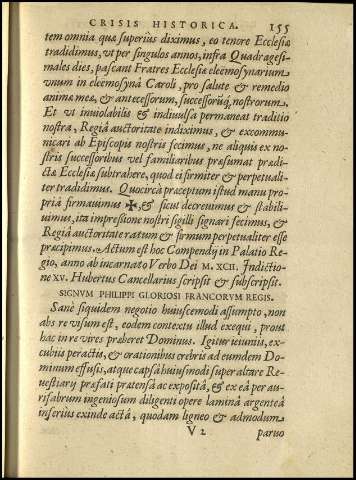 CRISIS HISTORICA. 155
tem omnia quæ superiùs diximus, eo tenore Ecclesiæ
tradidimus, vt per singulos annos, infra Quadragesi-
males dies, pascant Fratres Ecclesiæ eleemosynarium
vnum in eleemosynâ Caroli, pro salute & remedio
animæ meæ, & antecessorum, successorúq́, nostrorum.
Et vt inuiolabilis & indiuulsa permaneat traditio
nostra, Regiâ auctoritate indiximus, & excommu-
nicari ab Episcopis nostris fecimus, ne aliquis ex no-
stris successoribus vel familiaribus præsumat prædi-
ctæ Ecclesiæ subtrahere, quod ei firmiter & perpetuali-
ter tradidimus. Quocircà præceptum istud manu pro-
priâ firmauimus ✠, & sicut decreuimus & stabili-
uimus, ita impressione nostri sigilli signari fecimus, &
Regiâ auctoritate ratum & firmum perpetualiter esse
præcipimus. Actum est hoc Compendij in Palatio Re-
gio, anno ab incarnato Verbo Dei M. XCII. Indictio-
ne XV. Hubertus Cancellarius scripsit & subscripsit.
SIGNVM PHILIPPI GLORIOSI FRANCORVM REGIS.
Sanè siquidem negotio huiuscemodi assumpto, non
abs re visum est, eodem contextu illud exequi, prout
hac in re vires præberet Dominus. Igitur ieiuniis, ex-
cubiis peractis, & orationibus crebris ad eumdem Do-
minum effusis, atque capsâ huiusmodi super altare Re-
uestiarij præfati prætensâ ac expositâ, & ex eâ per au-
rifabrum ingeniosum diligenti opere laminâ argenteâ
inferius exinde actâ, quodam ligneo & admodum
V 2 paruo